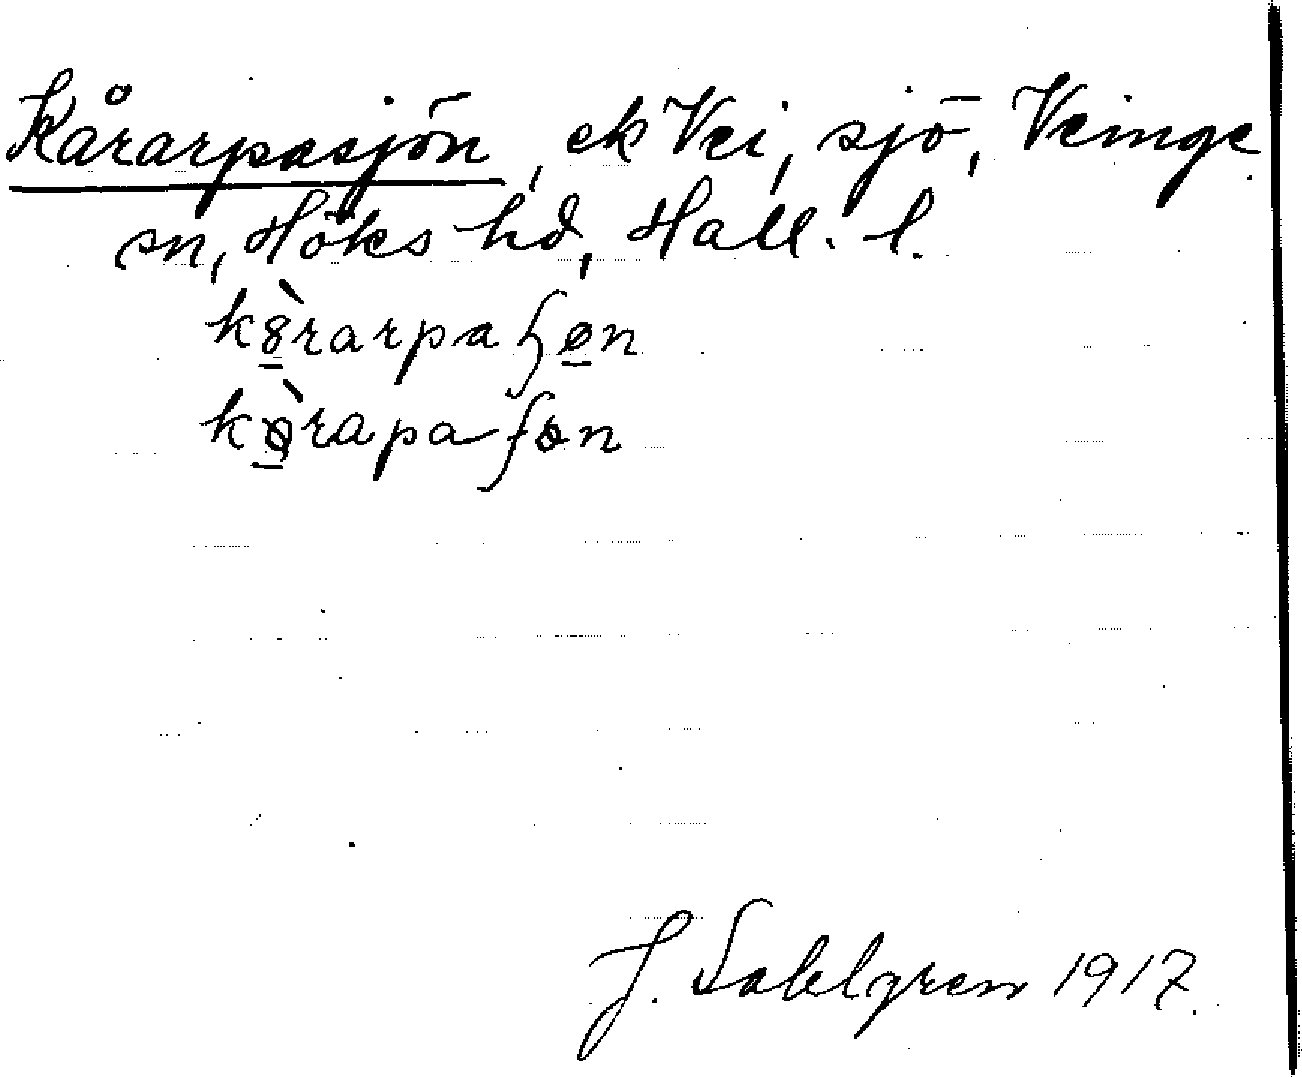 Kårarpasjön, ek Vei, sjö, Veinge
sn, Höks hd, Hall. l.
J. Sahlgren 1917.